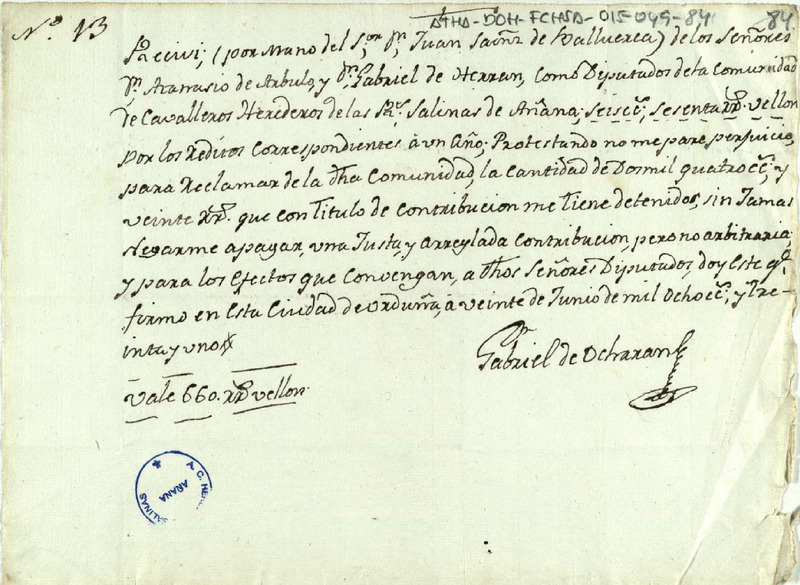 ATHA-DOH-FCHSA-015-049-84
84
N.º 13
Recivi; (por Mano del S.or D.n Juan Saenz de Valluerca) de los Señores
D.n Atanasio de Arbulo, y D.n Gabriel de Herran, como Diputados de la Comunidad
de Cavalleros Herederos de las R.s Salinas de Añana; seisc.s sesenta rr.s vellon
por los Reditos correspondientes à un Año; Protestando no me pare perjuicio,
para Reclamar de la dha Comunidad, la cantidad de Dosmil quatroc.s y
veinte rr.s que con Titulo de contribucion me tiene detenidos, sin Jamas
Negarme apagar, una Justa, y Arreglada contribucion, pero no arbitraria;
y para los efectos que convengan, a dhos Señores Diputados, doy este q.e
firmo en Esta Ciudad de Orduña, à veinte de Junio de mil Ochoc.s y tre-
inta y uno
Gabriel de Ocharan
Vale 660. rr.s vellon.
A. C. HE
AÑANA
SALINAS